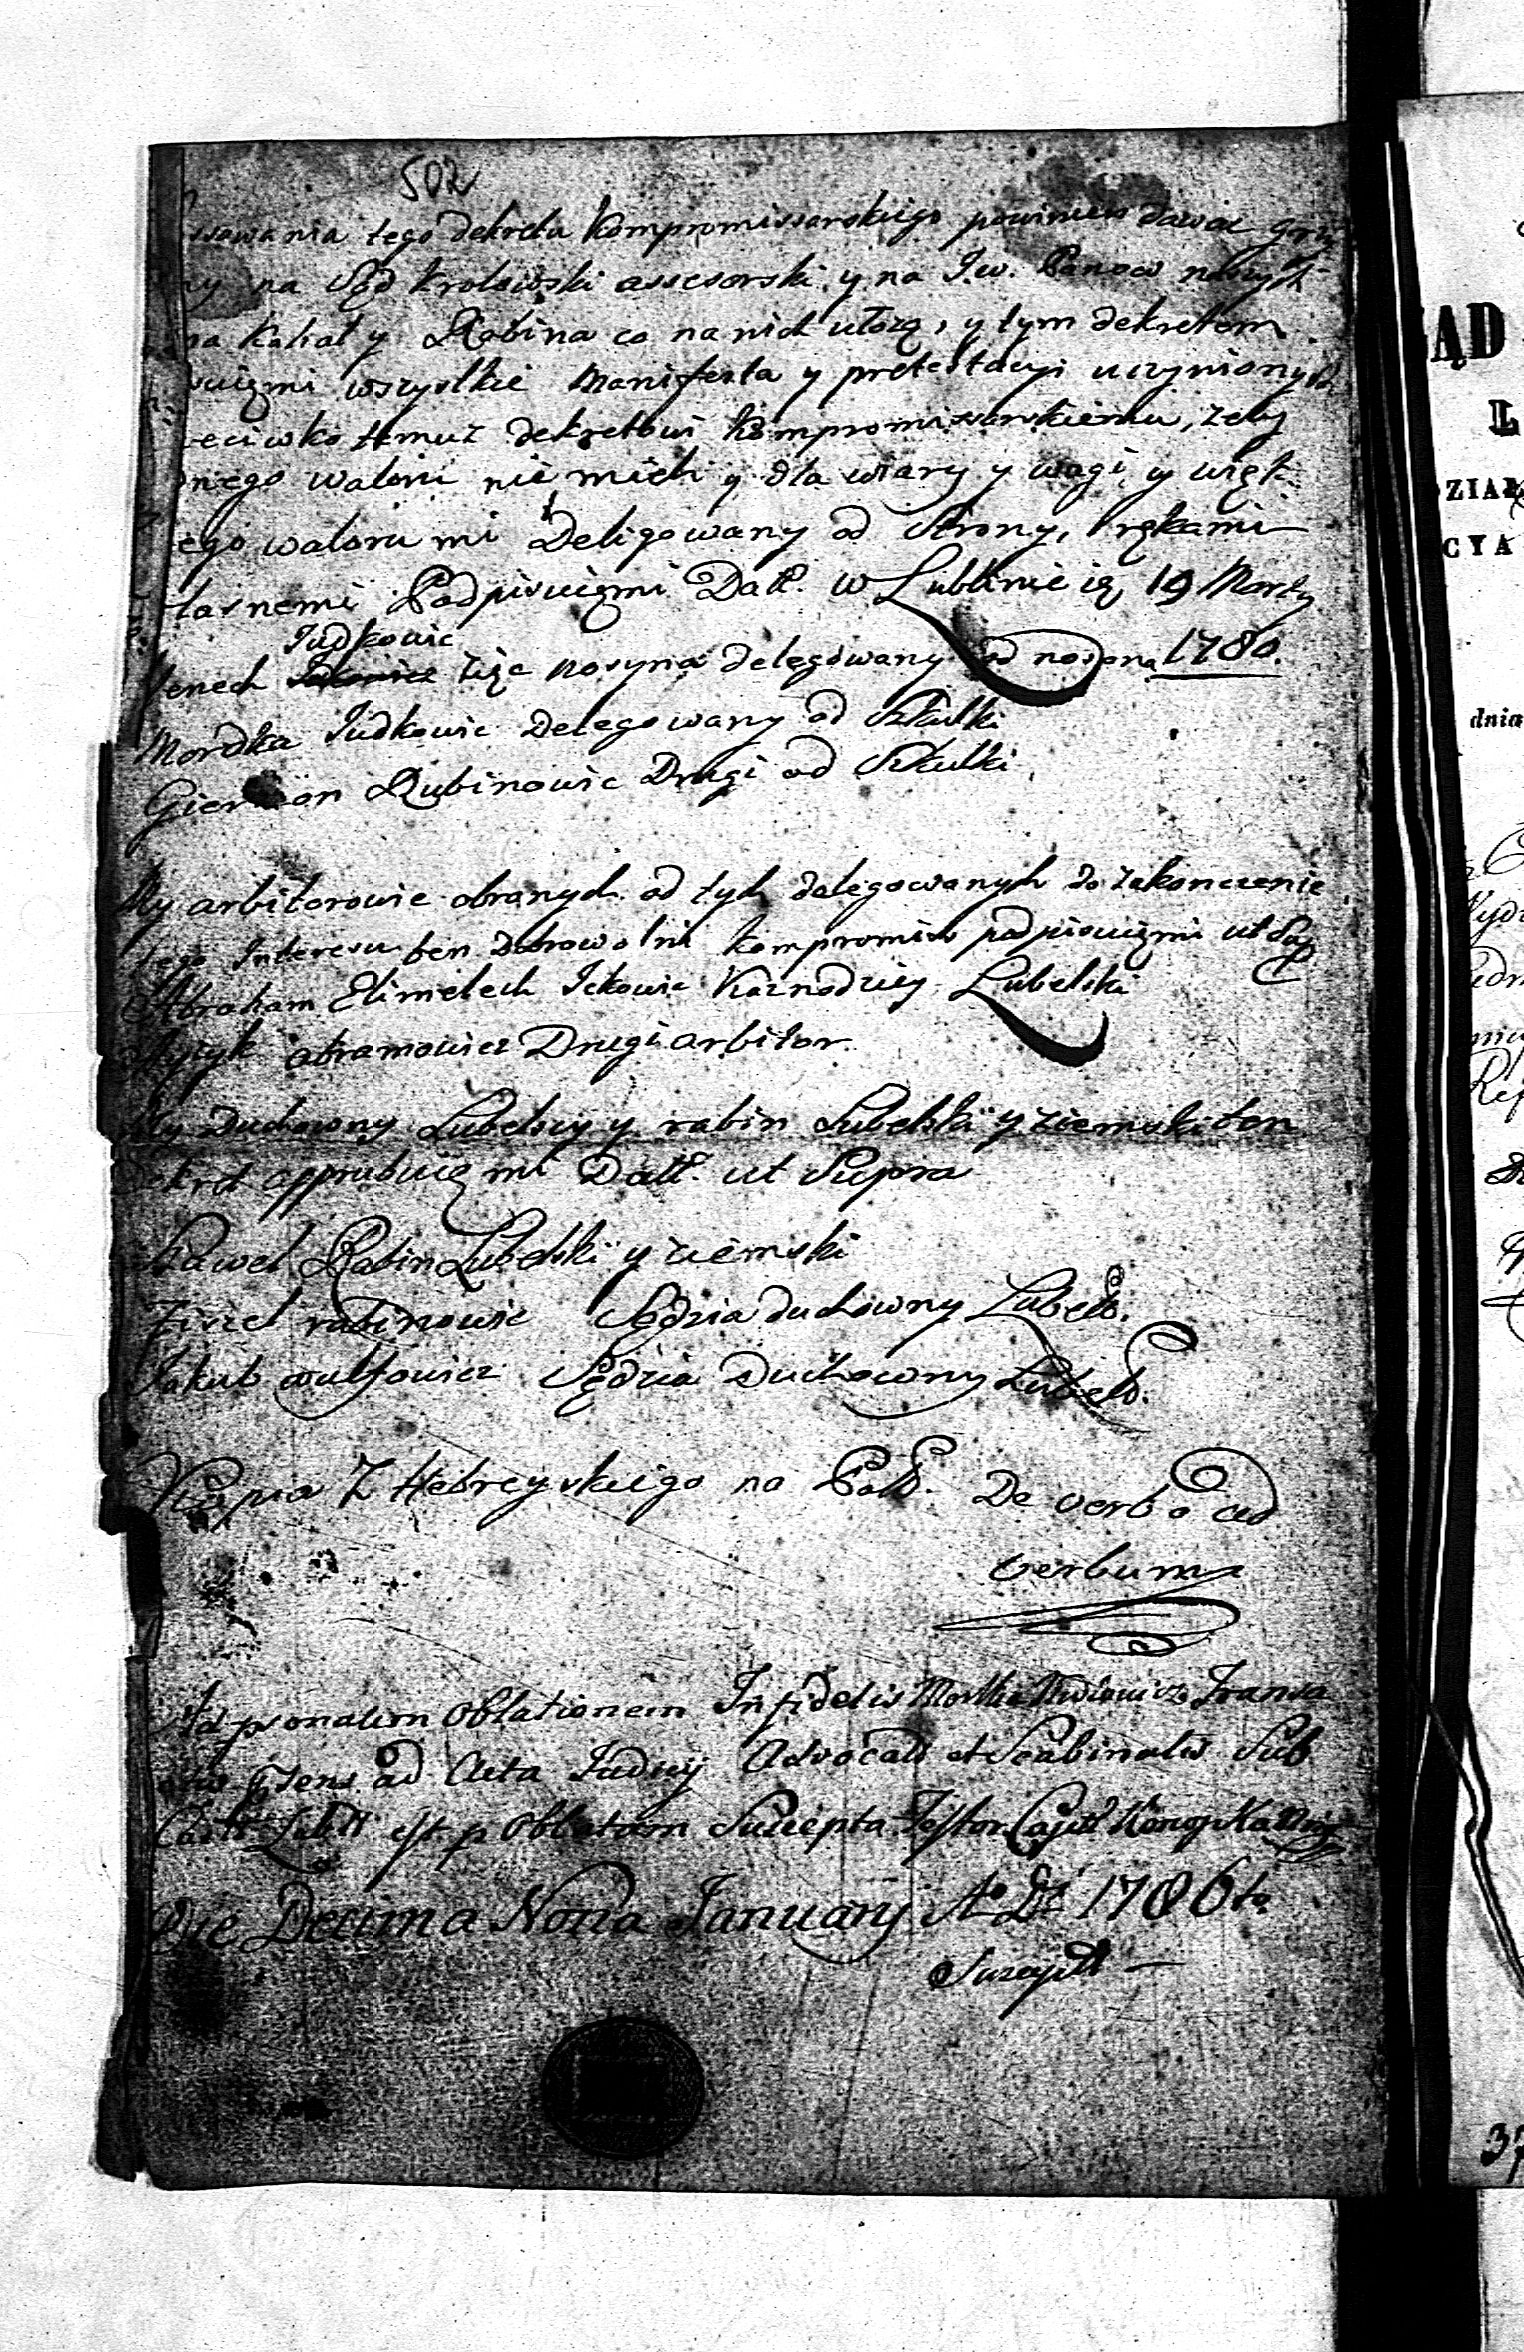 502
ssowania tego dekretu kompromissarskiego powinien dawac grzy
ny na Sąd krolewski assesorski, y na J.w. Panow naszych
na Kahał y Rabina co na nich ułożą, y tym dekretem
suięmi wszystkie Manifesta y protestacyi uczynionych
eciwko temuz dekretowi kompromissarskiemu, zeby
nego waloru nie mieli y dla wiary y wagi y więk
ego waloru mi Deligowany od Strony, rękami
łasnemi Podpisuięmi Datt. w Lublinie ię 19 Marty
Judkowic
enech delegowany od 1780.
Mordka Judkowic Delegowany od Szkulki
Gierszon Rubinowic Drugi od Szkulki
My arbitorowie obranych od tych delegowanych do zakonczenie
tego Interesu ten dobrowolni kompromis podpisuięmi ut Sup
Abraham Elimelech Ickowic Kaznodziey Lubelski
Ayzyk abramowicz Drugi arbitor.
My Duchowny Lubelscy y rabin Lubelski y ziemski ten
Dekret approbuięmi Datt. ut Supra
Rabin Lubelski y ziemski
rabinowic Sędzia duchowny Lubels.
Jakub wulfowicz Sędzia Duchowny Lubels.
Kopia Z Hebreyskiego na Pols. De verbo ad
verbum
Ad psonalem Oblationem Infidelis Mortka Transa
psens ad Acta Judicij Advocatt et Scabinalis Sub
Castr Lubll est p Oblatam Suscepta
Die Decima Nona Januarij Ao Di 1786to
Suscept
ĄD
L
DZIAŁ
CYA
dnia
37